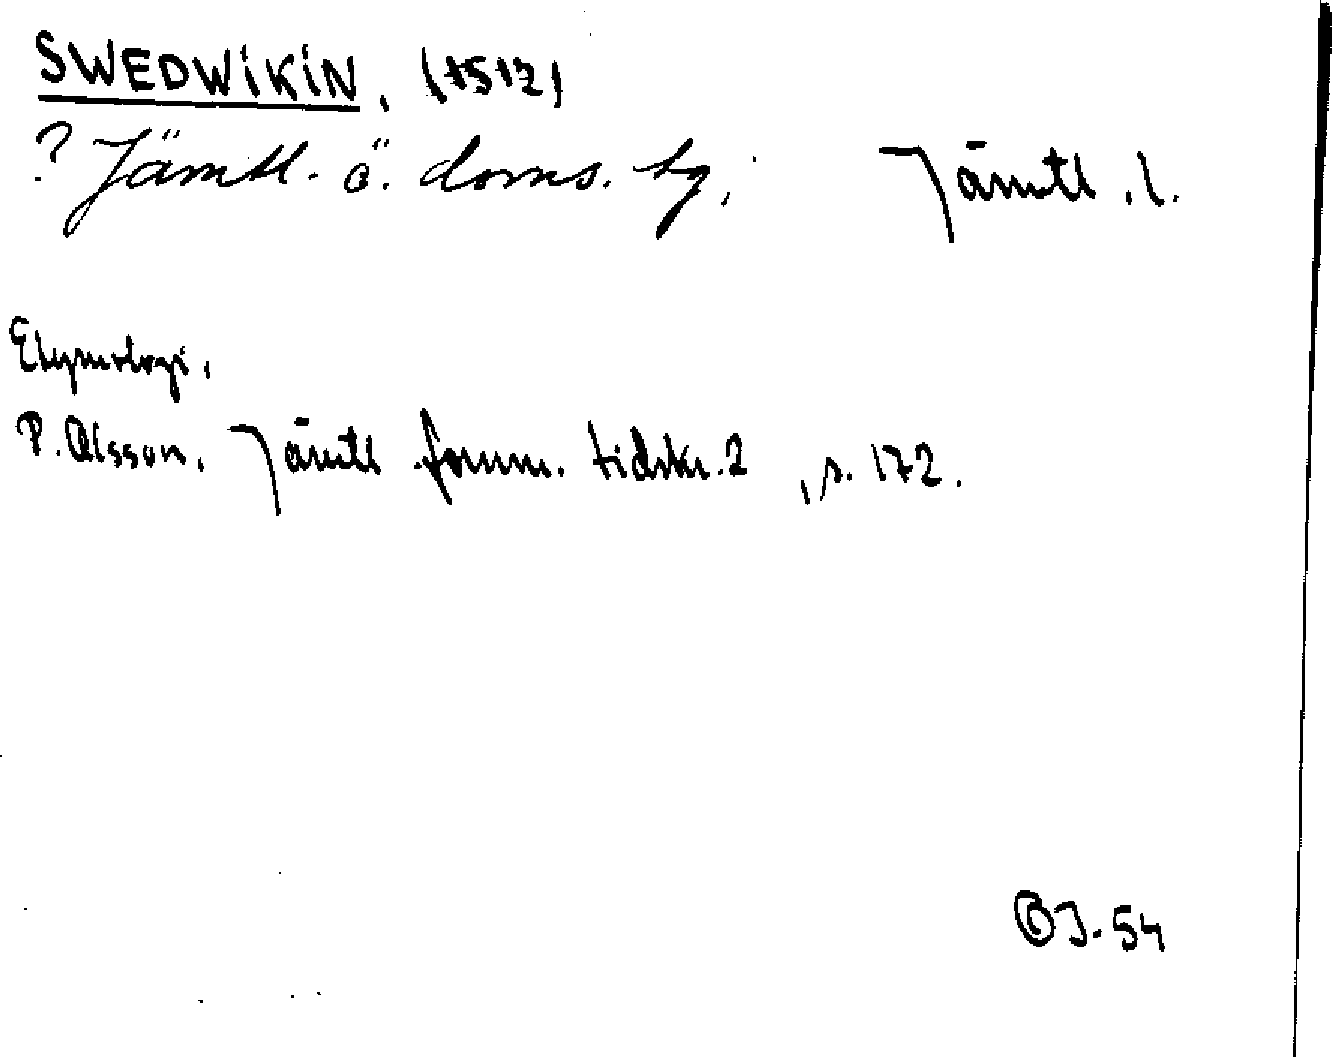 SWEDWIKIN, (1512)
? Jämtl. ö. doms. tg, Jämtl. l.
Etymologi.
P. Olsson, Jämtl fornm. tidskr. 2, s. 172.
J. 54